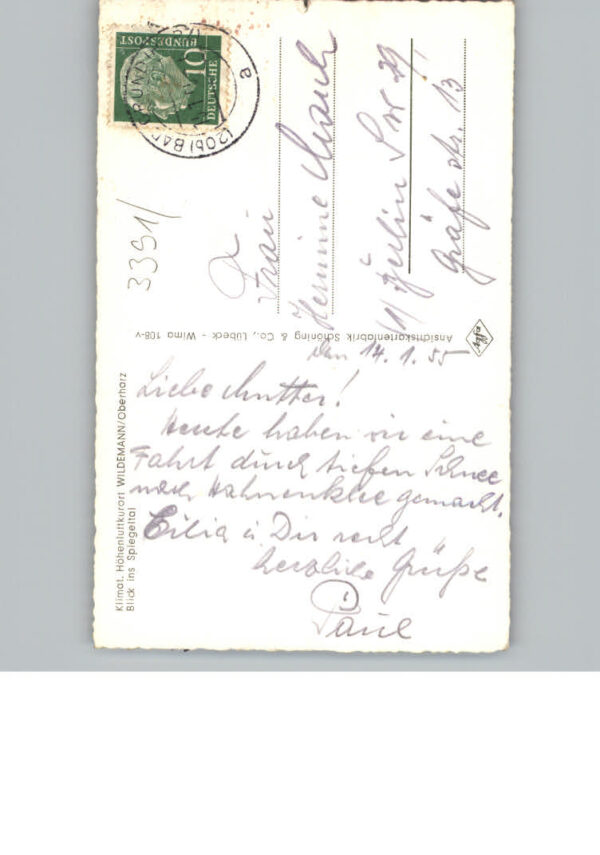 DEUTSCHE
BUNDESPOST
10
(20b) BAD GRUND
a
3391/
Frau
Hermine
Berlin SW 29
Gräfe str. 13
Ansichtskartenfabrik Schöning & Co., Lübeck - Wima 108-v
den 14.1.55
Liebe Mutter!
Heute haben wir eine
Fahrt durch tiefen Schnee
nach Hahnenklee gemacht.
Cilia u. Dir recht
herzliche Grüße
Paul
Klimat. Höhenluftkurort WILDEMANN/Oberharz
Blick ins Spiegeltal